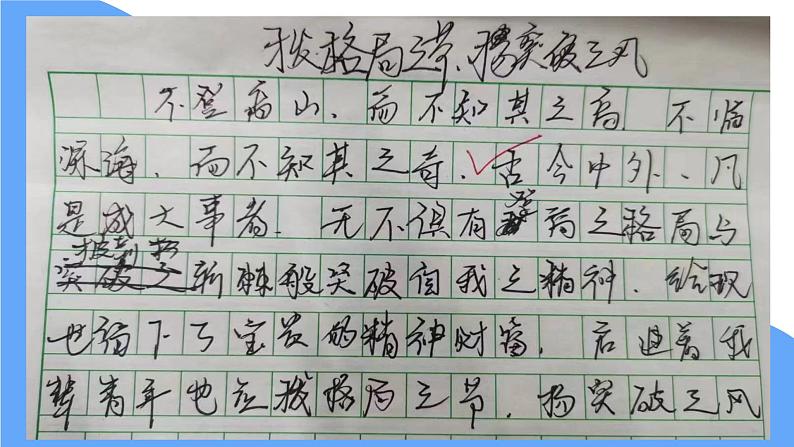 拔格局之节、扬突破之风
不登高山、而不知其之高 不临
深海、而不知其之奇、古今中外、凡
是成大事者、无不俱有登高之格局与
披荆斩棘般突破自我之精神、给现
也留下了宝贵的精神财富、启迪着我
辈青年也应拔格局之节、扬突破之风